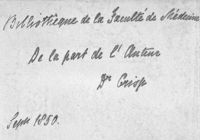 Bibliothèque de la Faculté de Médecine
De la part de l'Auteur
Dr Crisp
Sept 1850.